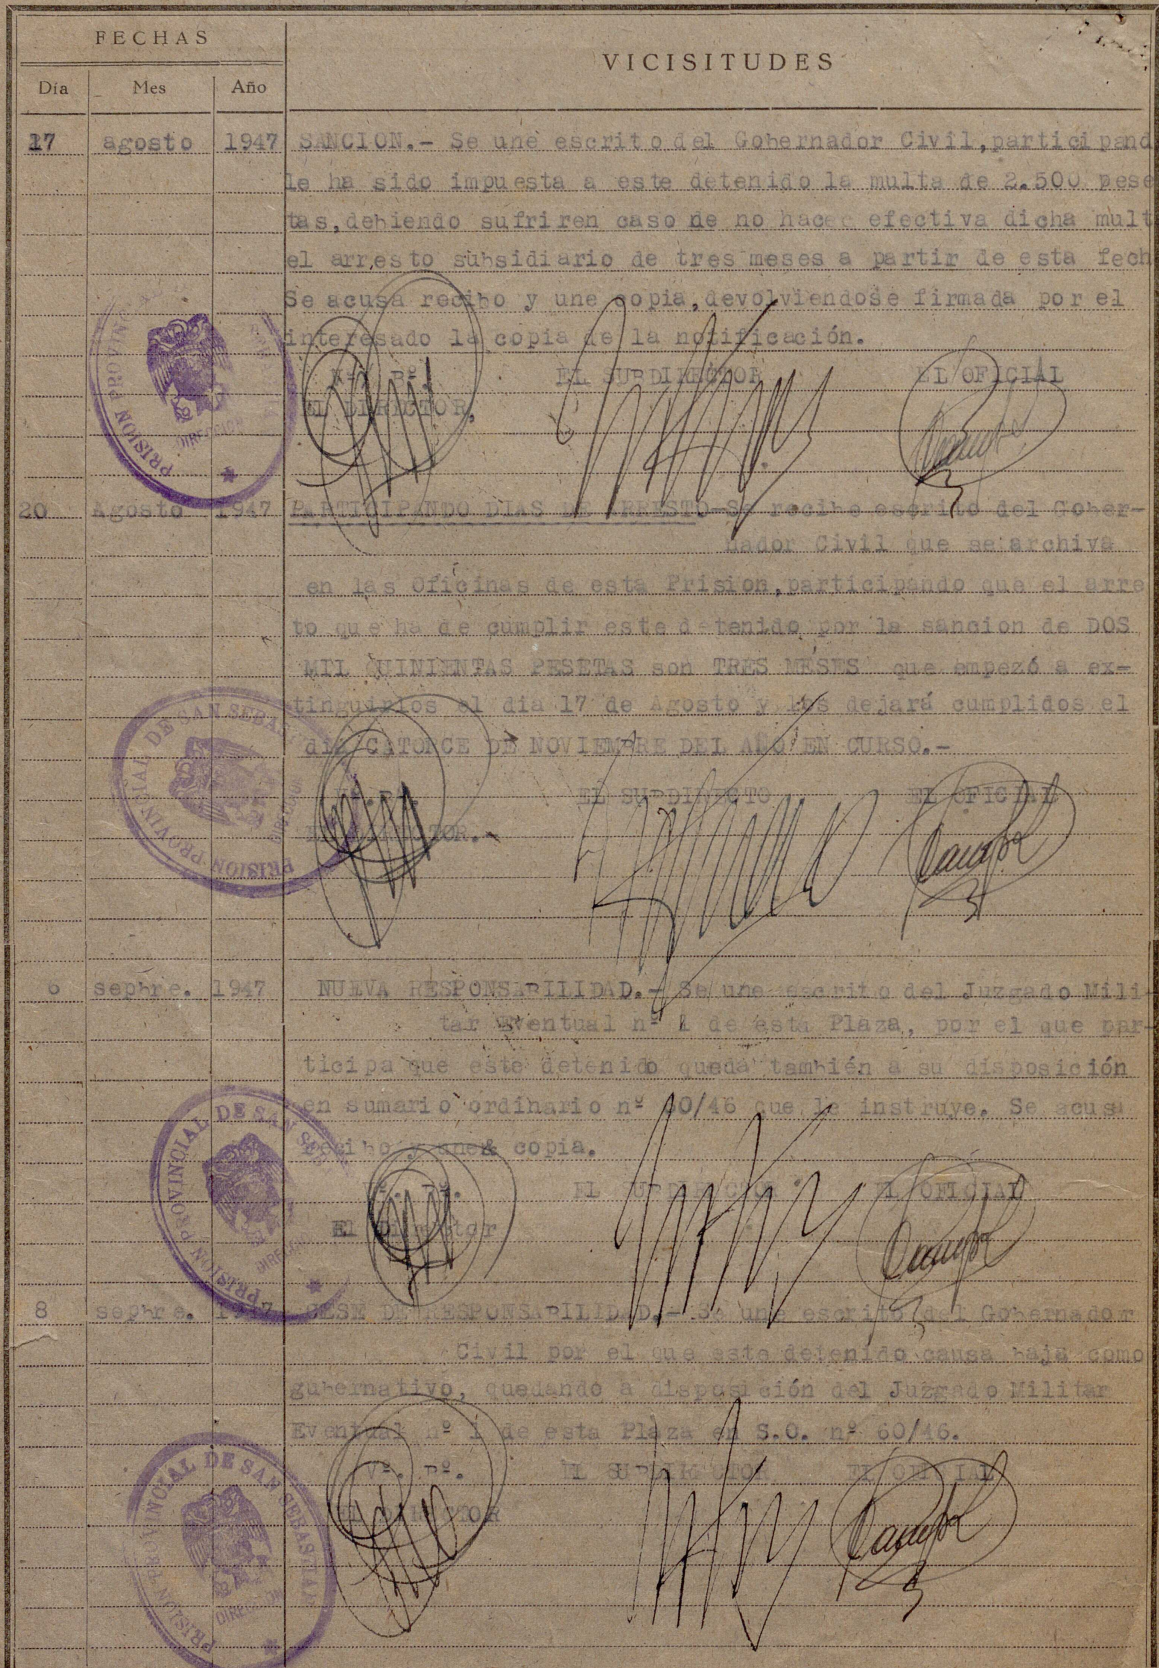 FECHAS
VICISITUDES
Día Mes Año
17 agosto 1947 SANCION.- Se une escrito del Gobernador Civil,participand
le ha sido impuesta a este detenido la multa de 2.500 pese
tas,debiendo sufriren caso de no hacer efectiva dicha mult
el arresto subsidiario de tres meses a partir de esta fech
Se acusa recibo y une copia,devolviendose firmada por el
interesado la copia de la notificación.
Vº. Bº. EL SUBDIRECTOR EL OFICIAL
EL DIRECTOR,
PRISION PROVINCIAL
DIRECCION
20 Agosto 1947 PARTICIPANDO DIAS DE ARRESTO-Se recibe escrito del Gober-
nador Civil que se archiva
en las Oficinas de esta Prision,participando que el arre
to que ha de cumplir este detenido por la sancion de DOS
MIL QUINIENTAS PESETAS son TRES MESES que empezó a ex-
tinguirlos el dia 17 de Agosto y los dejará cumplidos el
dia CATORCE DE NOVIEMBRE DEL AÑO EN CURSO.-
Vº. Bº. EL SUBDIRECTO EL OFICIAL
EL DIRECTOR.-
PRISION PROVINSIAL DE SAN SEBA
6 sepbre. 1947 NUEVA RESPONSABILIDAD.- Se une escrito del Juzgado Mili
tar Eventual nº 1 de esta Plaza, por el que par-
ticipa que este detenido queda también a su disposición
en sumario ordinario nº 60/46 que le instruye. Se acusa
recibo y une copia.
Vº. Bº. EL SUBDIRECTOR EL OFICIAL
El Director
PRISION PROVINCIAL DE SAN SEB
DIRECCION
8 sepbre. 1947 CESE DE RESPONSABILIDAD.- Se une escrito del Gobernador
Civil por el que este detenido causa baja como
gubernativo, quedando a disposición del Juzgado Militar
Eventual nº 1 de esta Plaza en S.O. nº 60/46.
Vº. Bº. EL SUBDIRECTOR EL OFICIAL
EL DIRECTOR
PRISION PROVINCIAL DE SAN SEBASTIAN